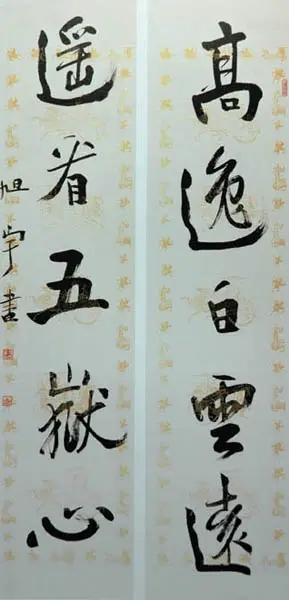 高逸白雲遠
遥省五嶽心
旭宇書